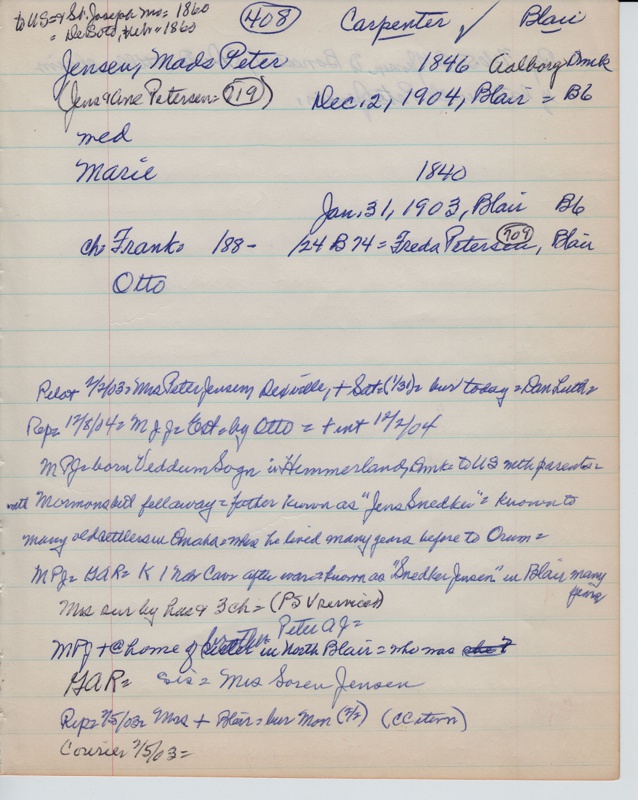 to US = & St. Joseph Mo = 1860
= DeSoto, Neb = 1860
408 Carpenter ✓ Blair
Jensen, Mads Peter 1846 Aalborg Dmk
(Jens & Ane Petersen = 719) Dec. 2, 1904, Blair = B6
med
Marie 1840
Jan. 31, 1903, Blair B6
ch Frank = 188- /24 B 74 = Freda Petersen 709, Blair
Otto
Pilot 2/2/03 = Mrs Peter Jensen, + Sat = (1/31) = bur today = Dan Luth =
Rep = 12/8/04 = M J J = Est = by Otto = + int 12/2/04
M P J = born Veddum Sogn in Himmerland, Dmk = to US with parents =
with Mormons but fell away = father known as "Jens Snedker" = known to
many old settlers in Omaha = where he lived many years before to Orum =
M P J = GAR = K 1 Neb Cav = after war = known as "Snedker Jensen" in Blair many
years
Mrs sur by hus & 3 ch = (PSV services)
brother Peter A J =
M P J + @ home of sister in North Blair = who was she?
GAR = sis = Mrs Soren Jensen
Rep = 2/5/03 = Mrs + Blair = bur Mon (2/2) (C Cetern)
Courier 2/5/03 =